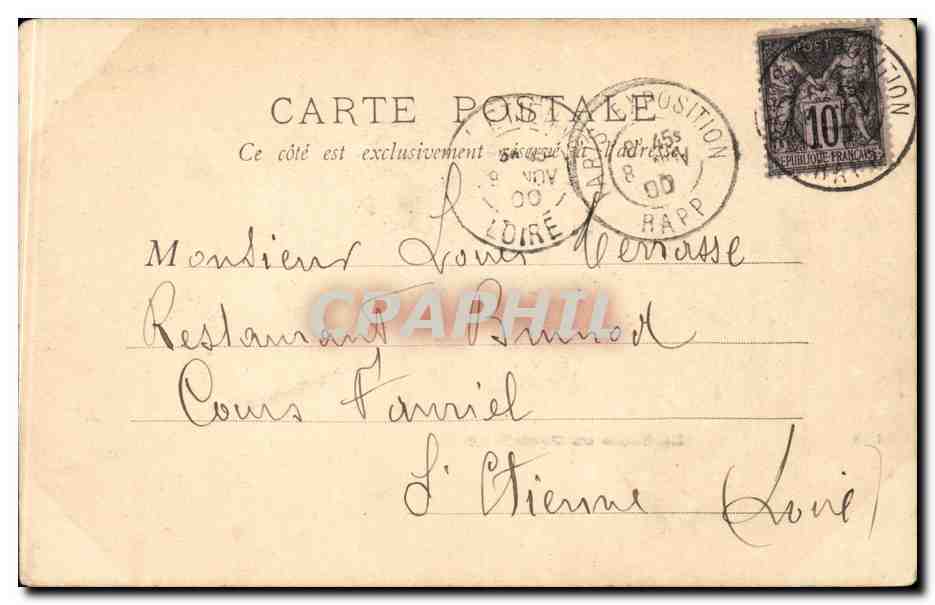 CARTE POSTALE
Ce côté est exclusivement réservé à l'adresse
POSTES
10
REPUBLIQUE FRANÇAISE
PARIS EXPOSITION
45s
8 AOU
00
RAPP
EXPOSITION
RAPP
8 AOU
00
LOIRE
Monsieur Louis Terrasse
CPRAPHIL
Restaurant Brunod
Cours Fauriel
St Etienne (Loire)